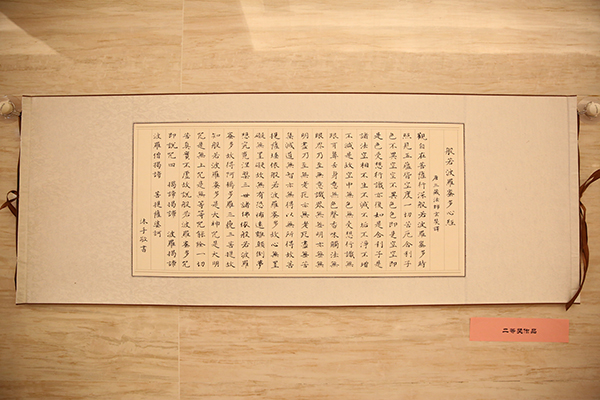 般若波羅蜜多心經
唐三藏法師玄奘譯
觀自在菩薩行深般若波羅蜜多時
照見五蘊皆空度一切苦厄舍利子
色不異空空不異色色即是空空即
是色受想行識亦復如是舍利子是
諸法空相不生不滅不垢不淨不增
不減是故空中無色無受想行識無
眼耳鼻舌身意無色聲香味觸法無
眼界乃至無意識界無無明亦無無
明盡乃至無老死亦無老死盡無苦
集滅道無智亦無得以無所得故菩
提薩埵依般若波羅蜜多故心無罣
礙無罣礙故無有恐怖遠離顛倒夢
想究竟涅槃三世諸佛依般若波羅
蜜多故得阿耨多羅三藐三菩提故
知般若波羅蜜多是大神咒是大明
咒是無上咒是無等等咒能除一切
苦真實不虛故說般若波羅蜜多咒
即說咒曰 揭諦揭諦 波羅揭諦
波羅僧揭諦 菩提薩婆訶
沐手敬書
二等奖作品